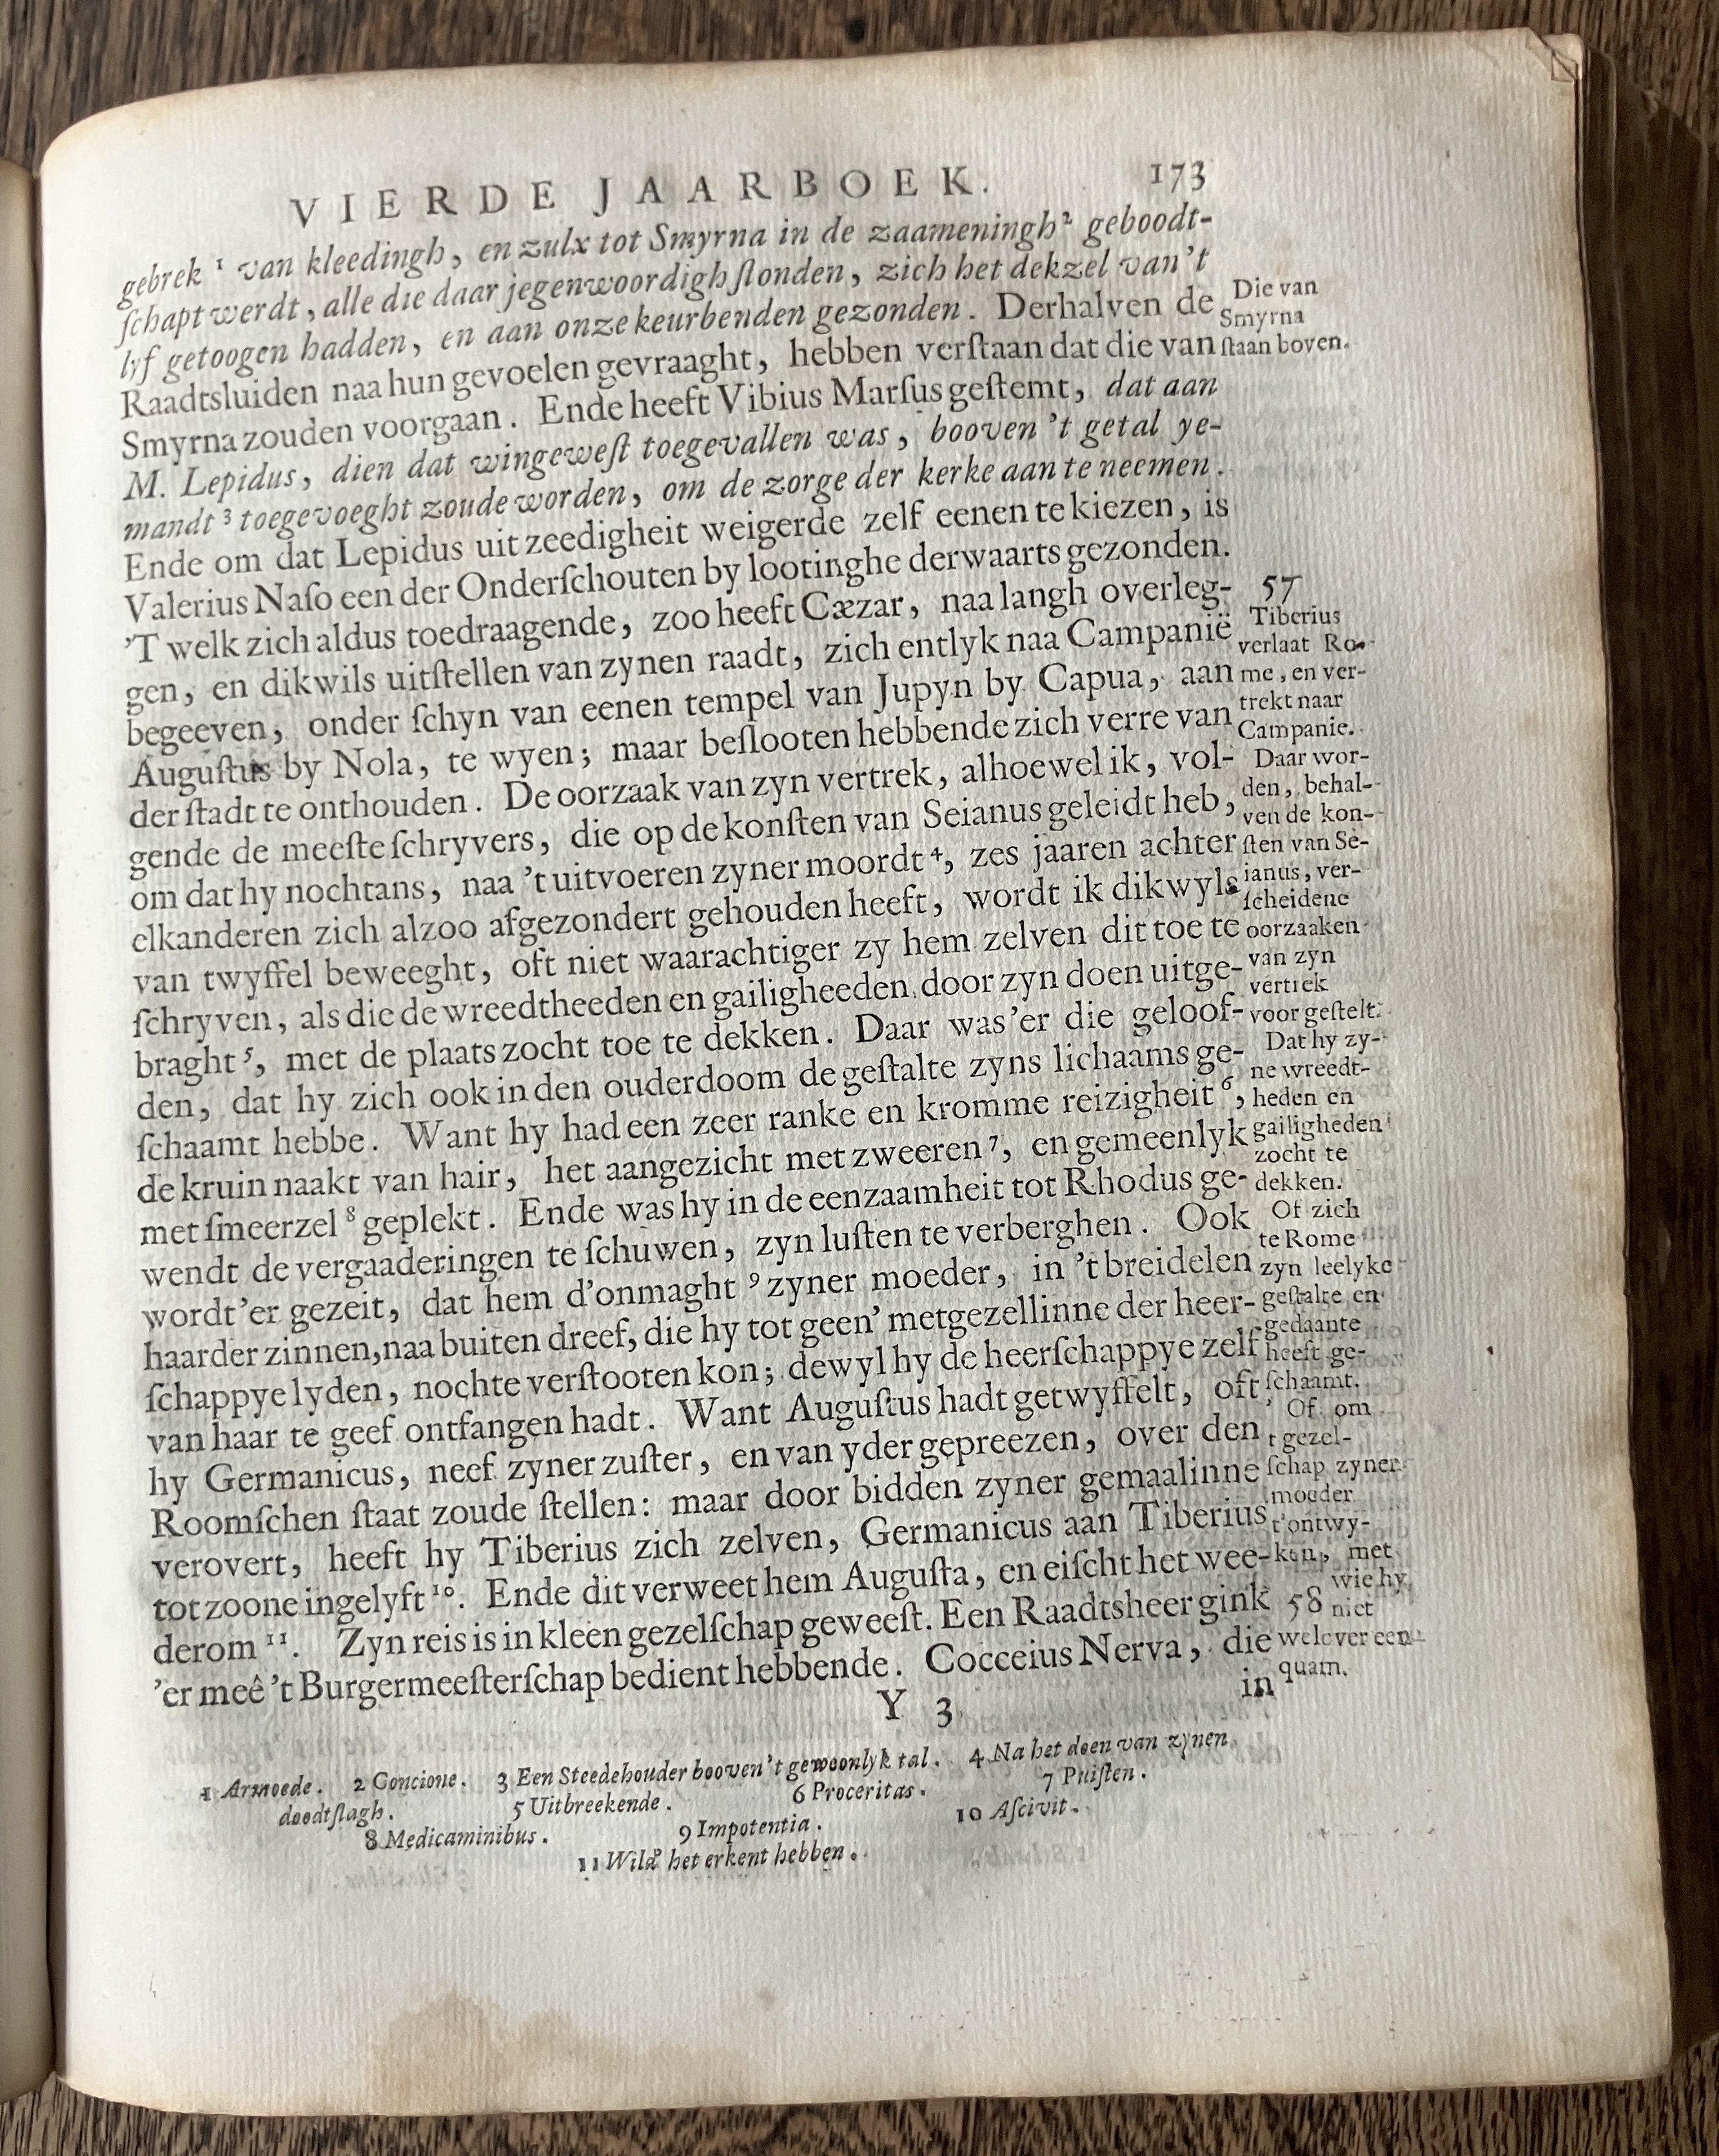 VIERDE JAARBOEK. 173
gebrek ¹ van kleedingh, en zulx tot Smyrna in de zaameningh² geboodt-
ſchapt werdt, alle die daar jegenwoordigh ſtonden, zich het dekzel van't
lyf getoogen hadden, en aan onze keurbenden gezonden. Derhalven de
Raadtsluiden naa hun gevoelen gevraaght, hebben verſtaan dat die van
Smyrna zouden voorgaan. Ende heeft Vibius Marſus geſtemt, dat aan
M. Lepidus, dien dat wingeweſt toegevallen was, booven 't getal ye-
mandt ³ toegevoeght zoude worden, om de zorge der kerke aan te neemen.
Ende om dat Lepidus uit zeedigheit weigerde zelf eenen te kiezen, is
Valerius Naſo een der Onderſchouten by lootinghe derwaarts gezonden.
'T welk zich aldus toedraagende, zoo heeft Cæzar, naa langh overleg-
gen, en dikwils uitſtellen van zynen raadt, zich entlyk naa Campanië
begeeven, onder ſchyn van eenen tempel van Jupyn by Capua, aan
Auguſtus by Nola, te wyen; maar beſlooten hebbende zich verre van
der ſtadt te onthouden. De oorzaak van zyn vertrek, alhoewel ik, vol-
gende de meeſte ſchryvers, die op de konſten van Seianus geleidt heb,
om dat hy nochtans, naa 't uitvoeren zyner moordt ⁴, zes jaaren achter
elkanderen zich alzoo afgezondert gehouden heeft, wordt ik dikwyls
van twyffel beweeght, oft niet waarachtiger zy hem zelven dit toe te
ſchryven, als die de wreedtheeden en gailigheeden door zyn doen uitge-
braght ⁵, met de plaats zocht toe te dekken. Daar was'er die geloof-
den, dat hy zich ook in den ouderdoom de geſtalte zyns lichaams ge-
ſchaamt hebbe. Want hy had een zeer ranke en kromme reizigheit ⁶,
de kruin naakt van hair, het aangezicht met zweeren ⁷, en gemeenlyk
met ſmeerzel ⁸ geplekt. Ende was hy in de eenzaamheit tot Rhodus ge-
wendt de vergaaderingen te ſchuwen, zyn luſten te verberghen. Ook
wordt'er gezeit, dat hem d'onmaght ⁹ zyner moeder, in 't breidelen
haarder zinnen, naa buiten dreef, die hy tot geen' metgezellinne der heer-
ſchappye lyden, nochte verſtooten kon; dewyl hy de heerſchappye zelf
van haar te geef ontfangen hadt. Want Auguſtus hadt getwyffelt, oft
hy Germanicus, neef zyner zuſter, en van yder gepreezen, over den
Roomſchen ſtaat zoude ſtellen: maar door bidden zyner gemaalinne
verovert, heeft hy Tiberius zich zelven, Germanicus aan Tiberius
tot zoone ingelyft ¹⁰. Ende dit verweet hem Auguſta, en eiſcht het wee-
derom ¹¹. Zyn reis is in kleen gezelſchap geweeſt. Een Raadtsheer gink
'er meê 't Burgermeeſterſchap bedient hebbende. Cocceius Nerva, die
Y 3 in
Die van
Smyrna
ſtaan boven.
57
Tiberius
verlaat Ro-
me, en ver-
trekt naar
Campanie.
Daar wor-
den, behal-
ven de kon-
ſten van Se-
ianus, ver-
ſcheidene
oorzaaken
van zyn
vertrek
voor geſtelt.
Dat hy zy-
ne wreedt-
heden en
gailigheden
zocht te
dekken.
Of zich
te Rome
zyn leelyke
geſtalte en
gedaante
heeft ge-
ſchaamt.
Of om
't gezel-
ſchap zyner
moeder
t'ontwy-
ken, met
wie hy
58 niet
wel over een
quam.
1 Armoede. 2 Concione. 3 Een Steedehouder booven't gewoonlyk tal. 4 Na het doen van zynen
doodtſlagh. 5 Uitbreekende. 6 Proceritas. 7 Puiſten.
8 Medicaminibus. 9 Impotentia. 10 Aſcivit.
11 Wild' het erkent hebben.